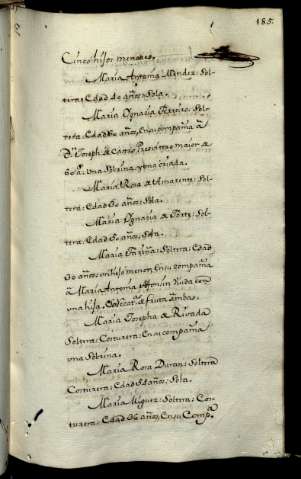 185.
Cinco hijos menores.
Maria Antonia Mendez: Sol-
tera: Edad de años: Sola.
Maria Ygnacia Ferreiro: Sol-
tera: Edad 60 años, En compañia
Dn. Joseph de Castro Presvitero maior de
60 a. una Sobrina y una criada.
Maria Rosa de Amarente: Sol-
tera: Edad 60 años: Sola.
Maria Ygnacia de Torre: Sol-
tera: Edad 50 años: Sola.
Maria Fariña: Soltera: Edad
50 años: un Hijo menor, En su compañia
a Maria Antonia Viuda con
una hija, de fruta ambas.
Maria Josepha de Rivada
Soltera: Costurera: En su compañia
una Sobrina.
Maria Rosa Duran: Soltera
Costurera: Edad 54 años: Sola.
Maria Miguez: Soltera: Cos-
turera: Edad 36 años, En su Compa.